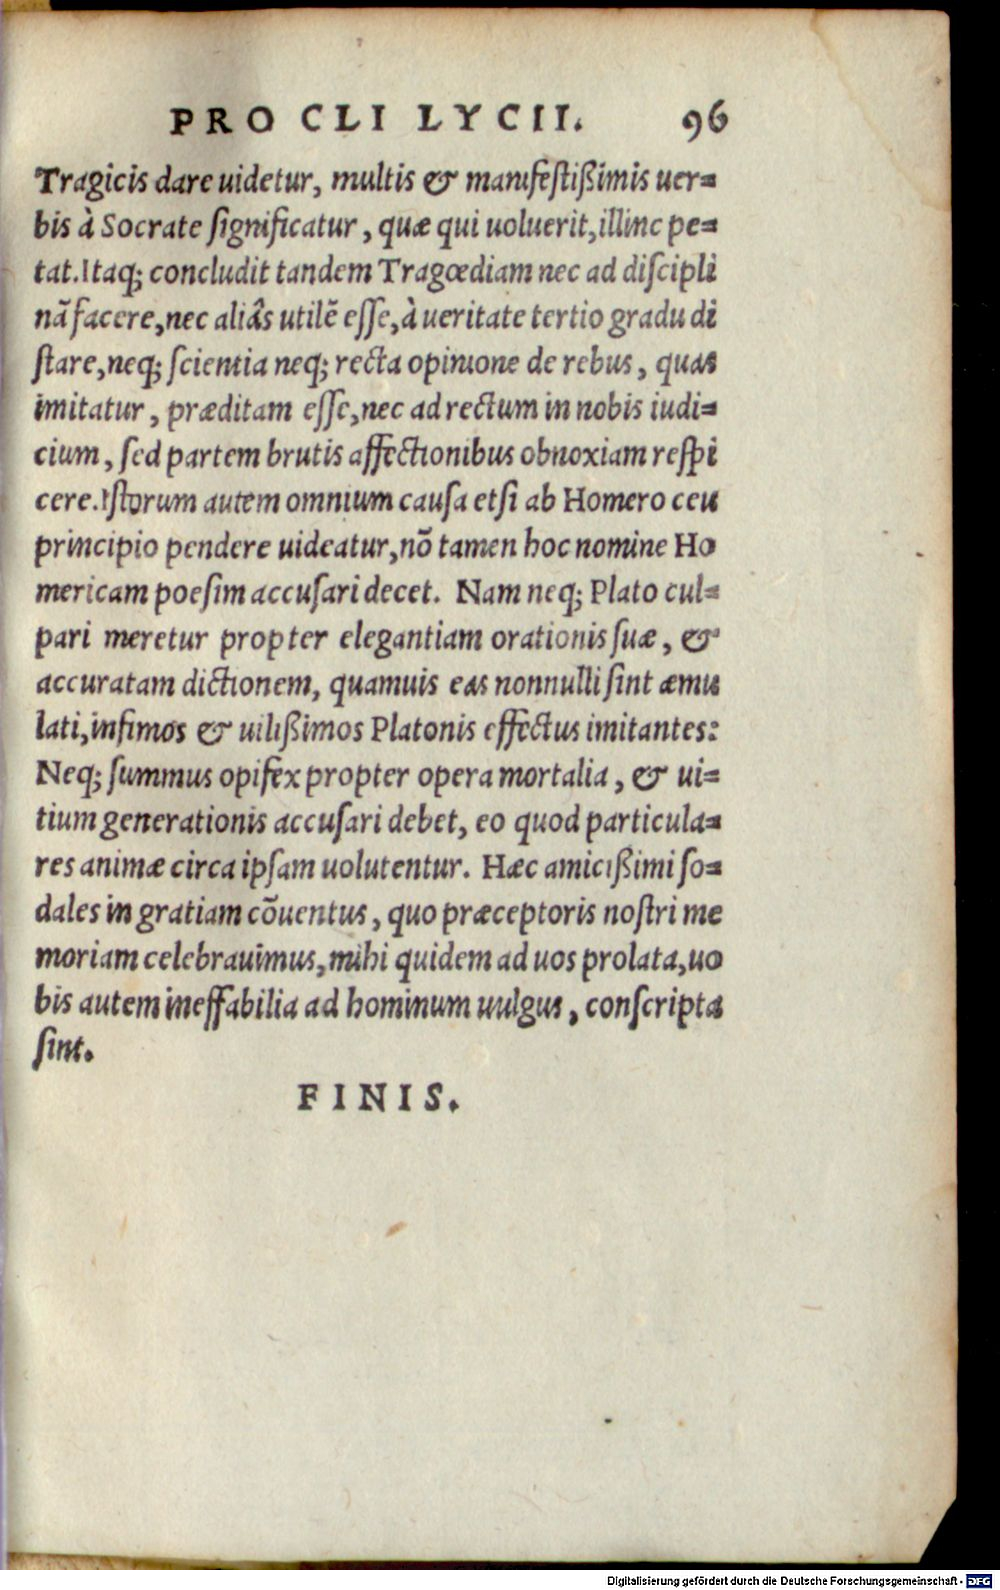 PRO CLI LYCII. 96
Tragicis dare uidetur, multis & manifestißimis uer=
bis à Socrate significatur, quæ qui uoluerit, illinc pe=
tat. Itaq; concludit tandem Tragœdiam nec ad discipli
nã facere, nec aliâs utilẽ esse, à ueritate tertio gradu di
stare, neq; scientia neq; recta opinione de rebus, quas
imitatur, præditam esse, nec ad rectum in nobis iudi=
cium, sed partem brutis affectionibus obnoxiam respi
cere. Istorum autem omnium causa etsi ab Homero ceu
principio pendere uideatur, nõ tamen hoc nomine Ho
mericam poesim accusari decet. Nam neq; Plato cul=
pari meretur propter elegantiam orationis suæ, &
accuratam dictionem, quamuis eas nonnulli sint æmu
lati, infimos & uilißimos Platonis effectus imitantes:
Neq; summus opifex propter opera mortalia, & ui=
tium generationis accusari debet, eo quod particula=
res animæ circa ipsam uolutentur. Hæc amicißimi so=
dales in gratiam cõuentus, quo præceptoris nostri me
moriam celebrauimus, mihi quidem ad uos prolata, uo
bis autem ineffabilia ad hominum uulgus, conscripta
sint.
FINIS.
Digitalisierung gefördert durch die Deutsche Forschungsgemeinschaft - DFG